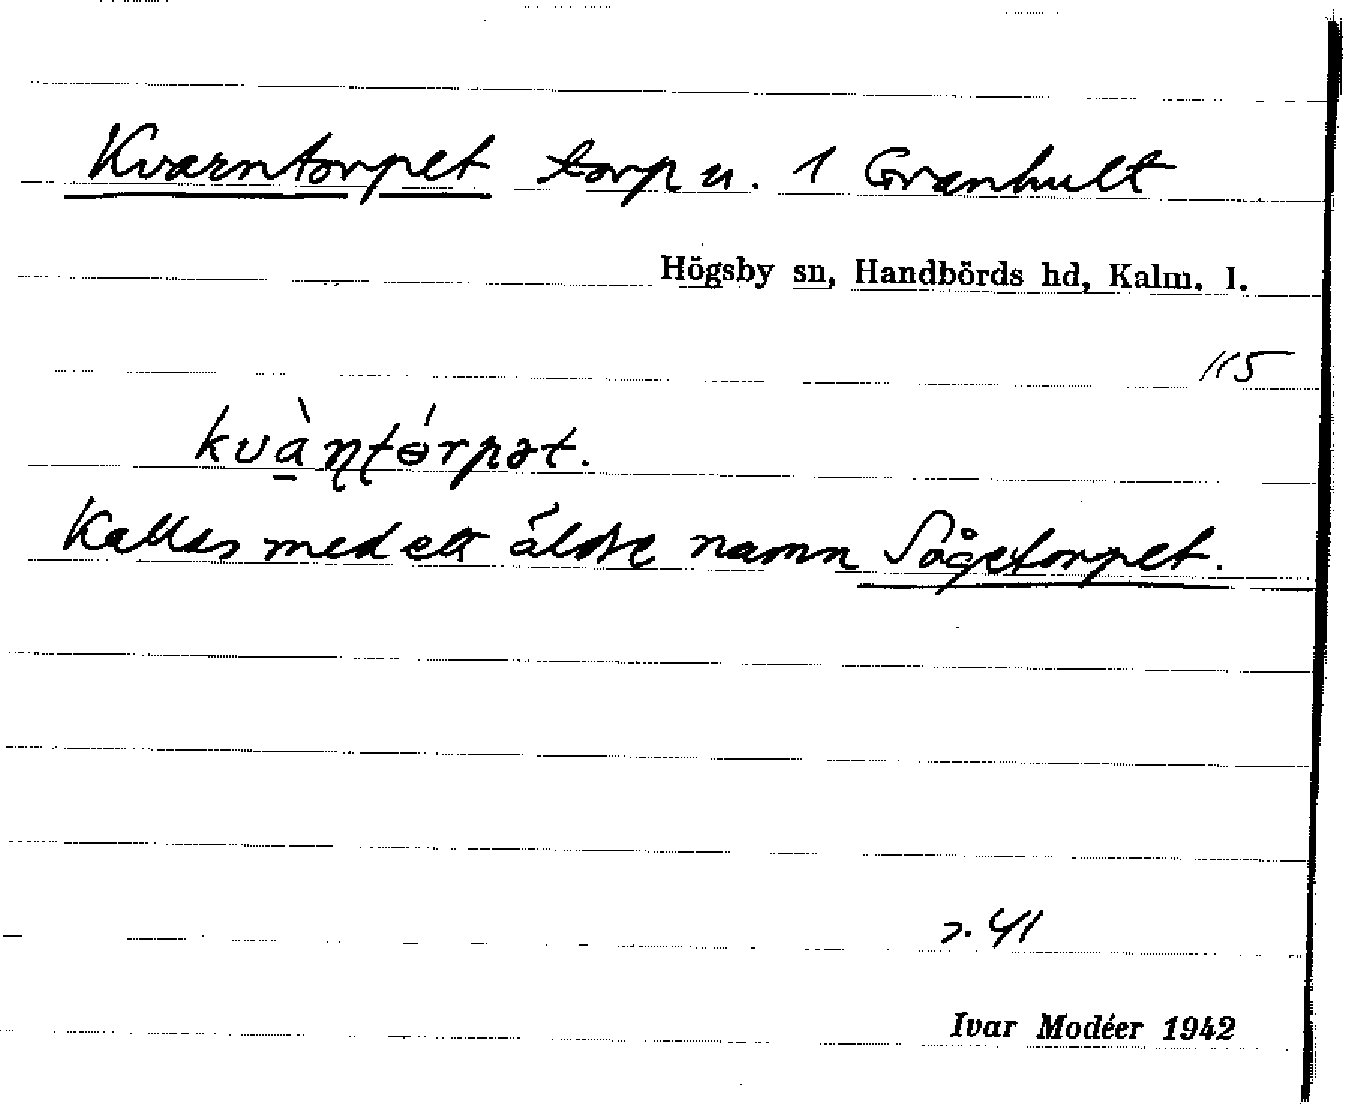 Kvarntorpet torp u. 1 Granhult
Högsby sn, Handbörds hd, Kalm. l.
115
kvàn̨ţɵ́rpət.
Kallas med ett äldre namn Sågetorpet.
s. 41
Ivar Modéer 1942